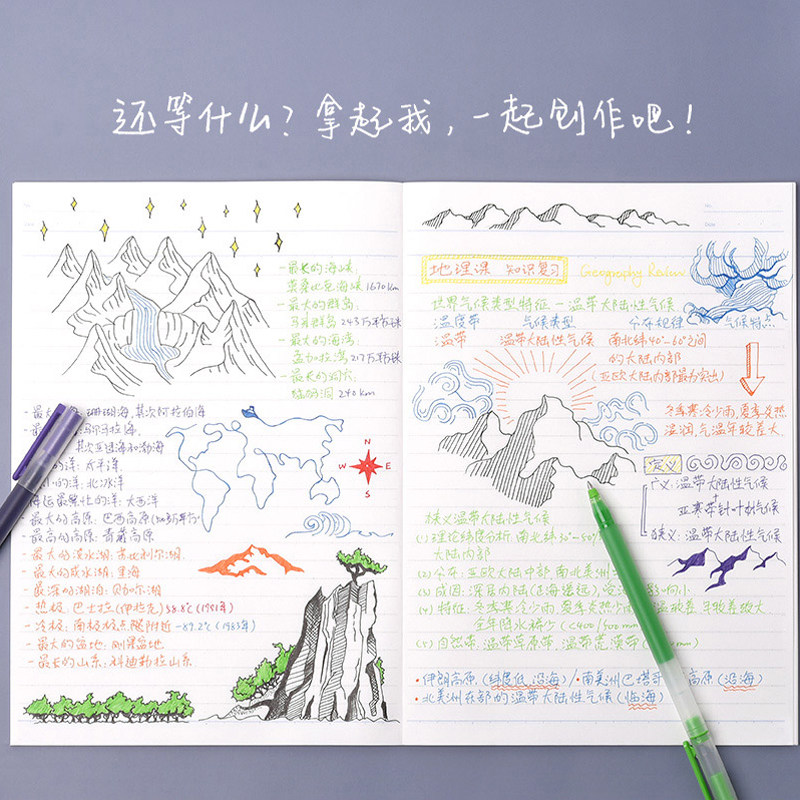 还等什么？拿起我，一起创作吧！
-最长的海峡：
莫桑比克海峡1670km
-最大的群岛：
马来群岛243万平方km
-最大的海湾：
孟加拉湾217万平方km
-最长的
240km
-最大 珊瑚海，其次阿拉伯海
-最 马尔马拉海，
其次亚速海和渤海
的洋：太平洋
小的洋：北冰洋
洋：大西洋
-最大的高原：巴西高原
-最高的高原：青藏高原
-最大的淡水湖：苏必利尔湖
-最大的咸水湖：里海
-最深的湖泊：贝加尔湖
-热极：巴士拉（伊拉克）58.8℃（1921年）
-冷极：南极极点附近 -89.2℃（1983年）
-最大的盆地：刚果盆地
-最长的山系：科迪勒拉山系
N
W E
S
No.
Date
地理课 知识复习 Geography Review
世界气候类型特征-温带大陆性气候
温度带 气候类型 分布规律 气候特点
温带 温带大陆性气候 南北纬40°-60°之间
的大陆内部
（亚欧大陆内部最为突出）
冬季寒冷少雨，夏季炎热
湿润，气温年较差大.
定义
广义：温带大陆性气候
+
亚寒带针叶林气候
狭义：温带大陆性气候
狭义温带大陆性气候
(1)理论纬度分析：南北纬30°-50°
大陆内部
(2)分布：亚欧大陆中部、南北美洲
(3)成因：深居内陆（距海遥远），影响小
(4)特征：冬季寒冷少雨，夏季炎热少 温较差、年较差大
全年降水稀少（<400/500mm
(5)自然带：温带草原带、温带荒漠带 mm）
·伊朗高原（纬度低、沿海）/·南美洲巴塔哥 高原（沿海）
·北美洲东部的温带大陆性气候（临海）